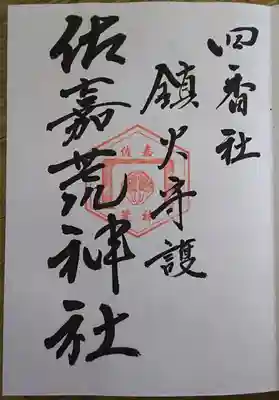 四香社
鎮火守護
佐嘉荒神社